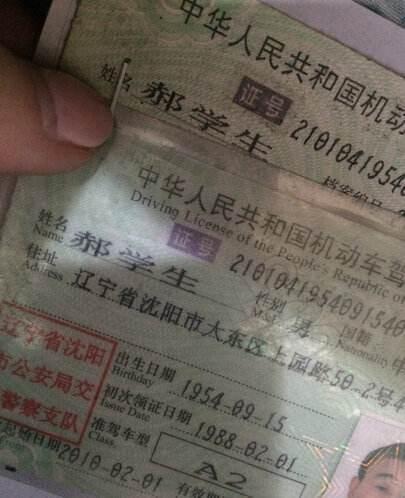 中华人民共和国机动
证号
21010419540
姓名 郝学生
中华人民共和国机动车驾
Driving License of the People's Republic of
证号 2101041954091540
姓名 郝学生
Name
性别 男 国籍
Nationality
住址 辽宁省沈阳市大东区上园路50-2号4
Address
辽宁省沈阳
市公安局交
警察支队
出生日期 1954-09-15
Birthday
初次领证日期 1988-02-01
Issue Date
准驾车型 A2
Class
2010-02-01 有效期